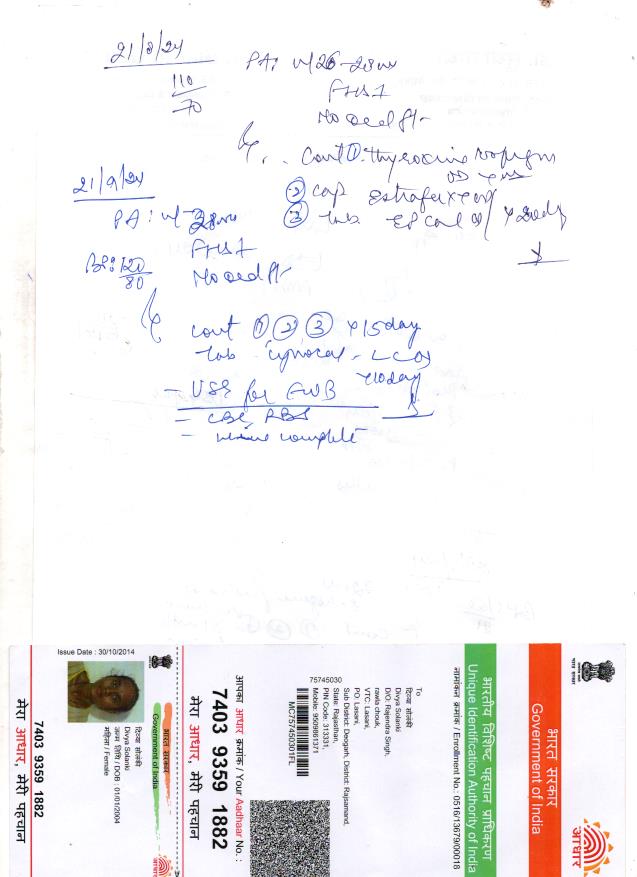 21/8/24
110
70
PA: ut 26-28 wk
FHS +
No oedema
Rx
Cont ① Thyroxine
② Cap
③ Tab.
21/9/24
PA: ut
FHS +
BP: 120
80
No oedema
Rx
cont ① ② ③ x 15 day
Tab
x 10 day
- USG for FWB
= CBC, RBS
- urine complete
भारत सरकार
Government of India
आधार
भारतीय विशिष्ट पहचान प्राधिकरण
Unique Identification Authority of India
नामांकन क्रमांक / Enrollment No.: 0516/13679/00018
To
दिव्या सोलंकी
Divya Solanki
D/O: Rajendra Singh,
rawla chouk,
VTC: Lasani,
PO: Lasani,
Sub District: Deogarh, District: Rajsamand,
State: Rajasthan,
PIN Code: 313331,
Mobile: 9509861371
75745030
MC757450301FL
आपका आधार क्रमांक / Your Aadhaar No. :
7403 9359 1882
मेरा आधार, मेरी पहचान
Issue Date : 30/10/2014
भारत सरकार
Government of India
दिव्या सोलंकी
Divya Solanki
जन्म तिथि / DOB : 01/01/2004
महिला / Female
7403 9359 1882
मेरा आधार, मेरी पहचान